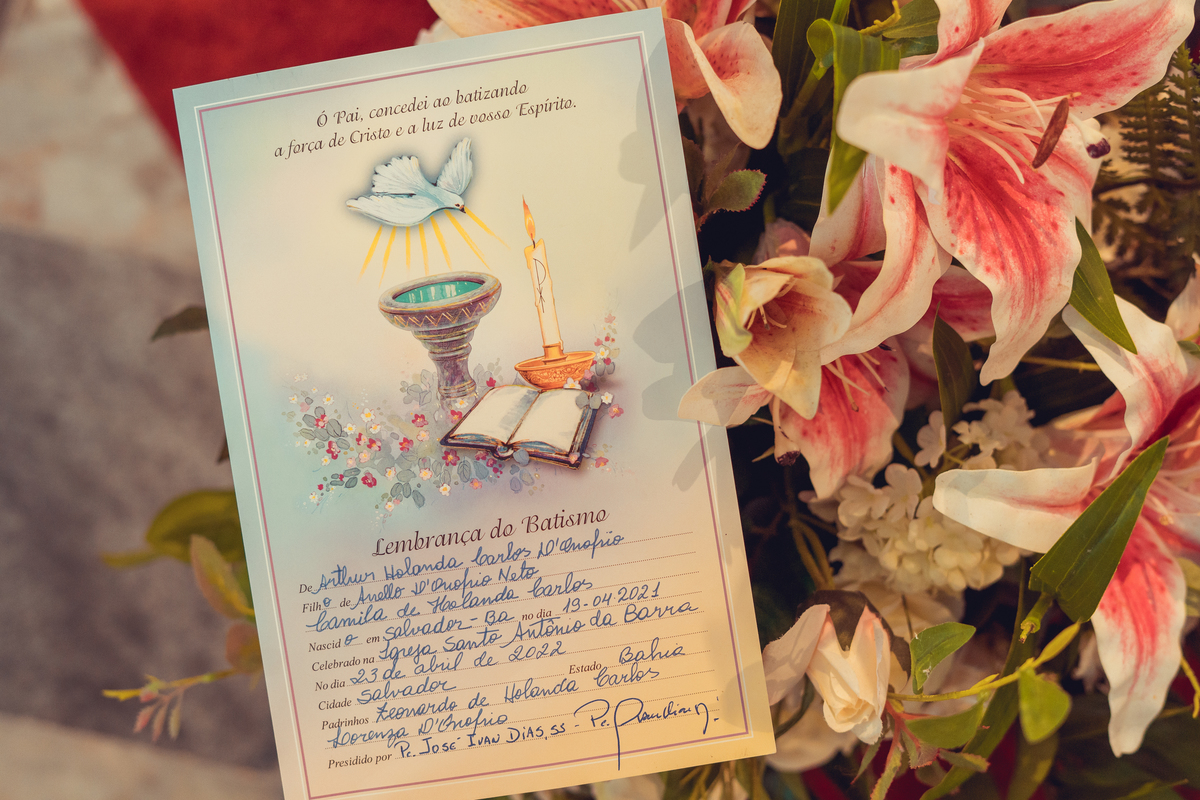 Ó Pai, concedei ao batizando
a força de Cristo e a luz de vosso Espírito.
Lembrança do Batismo
De Arthur Holanda Carlos D'Onofrio
Filho de Anello D'Onofrio Neto
Camila de Holanda Carlos
Nascido em Salvador-Ba no dia 19-04-2021
Celebrado na Igreja Santo Antônio da Barra
No dia 23 de abril de 2022
Cidade Salvador Estado Bahia
Padrinhos Leonardo de Holanda Carlos
Lorenza D'Onofrio
Presidido por Pe. José Ivan Dias, ss - Pe.